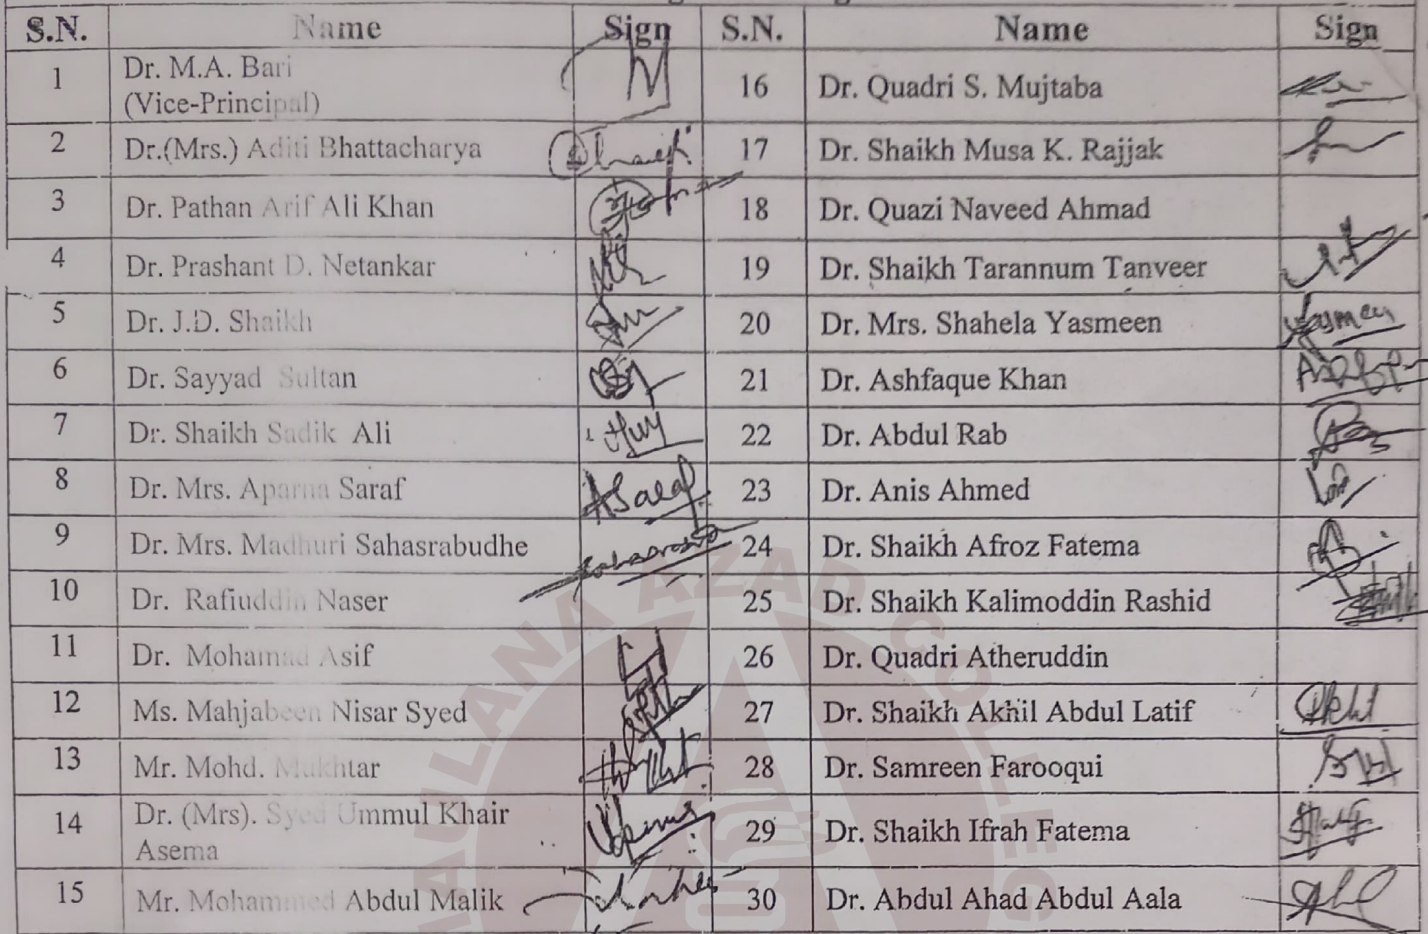 S.N. Name Sign S.N. Name Sign
1 Dr. M.A. Bari
(Vice-Principal) 16 Dr. Quadri S. Mujtaba
2 Dr.(Mrs.) Aditi Bhattacharya 17 Dr. Shaikh Musa K. Rajjak
3 Dr. Pathan Arif Ali Khan 18 Dr. Quazi Naveed Ahmad
4 Dr. Prashant D. Netankar 19 Dr. Shaikh Tarannum Tanveer
5 Dr. J.D. Shaikh 20 Dr. Mrs. Shahela Yasmeen Yasmeen
6 Dr. Sayyad Sultan 21 Dr. Ashfaque Khan
7 Dr. Shaikh Sadik Ali 22 Dr. Abdul Rab
8 Dr. Mrs. Aparna Saraf ASaraf 23 Dr. Anis Ahmed
9 Dr. Mrs. Madhuri Sahasrabudhe 24 Dr. Shaikh Afroz Fatema
10 Dr. Rafiuddin Naser 25 Dr. Shaikh Kalimoddin Rashid
11 Dr. Mohamad Asif 26 Dr. Quadri Atheruddin
12 Ms. Mahjabeen Nisar Syed 27 Dr. Shaikh Akhil Abdul Latif
13 Mr. Mohd. Mukhtar 28 Dr. Samreen Farooqui
14 Dr. (Mrs). Syed Ummul Khair
Asema 29 Dr. Shaikh Ifrah Fatema
15 Mr. Mohammed Abdul Malik 30 Dr. Abdul Ahad Abdul Aala
MAULANA AZAD COLLEG